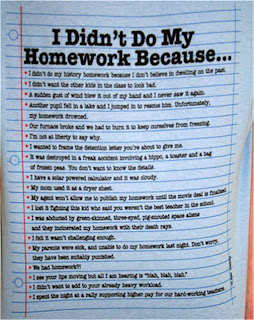 I Didn't Do My
Homework Because...
• I didn't do my history homework because I don't believe in dwelling on the past.
• I didn't want the other kids in the class to look bad.
• A sudden gust of wind blew it out of my hand and I never saw it again.
• Another pupil fell in a lake and I jumped in to rescue him. Unfortunately,
my homework drowned.
• Our furnace broke and we had to burn it to keep ourselves from freezing.
• I'm not at liberty to say why.
• I wanted to frame the detention letter you're about to give me.
• It was destroyed in a freak accident involving a hippo, a toaster and a bag
of frozen peas. You don't want to know the details.
• I have a solar powered calculator and it was cloudy.
• My mom used it as a dryer sheet.
• My agent won't allow me to publish my homework until the movie deal is finalised.
• I lost it fighting this kid who said you weren't the best teacher in the school.
• I was abducted by green-skinned, three-eyed, pig-snouted space aliens
and they incinerated my homework with their death rays.
• I felt it wasn't challenging enough.
• My parents were sick, and unable to do my homework last night. Don't worry,
they have been suitably punished.
• We had homework?!
• I see your lips moving but all I am hearing is "blah, blah, blah."
• I didn't want to add to your already heavy workload.
• I spent the night at a rally supporting higher pay for our hard-working teachers.